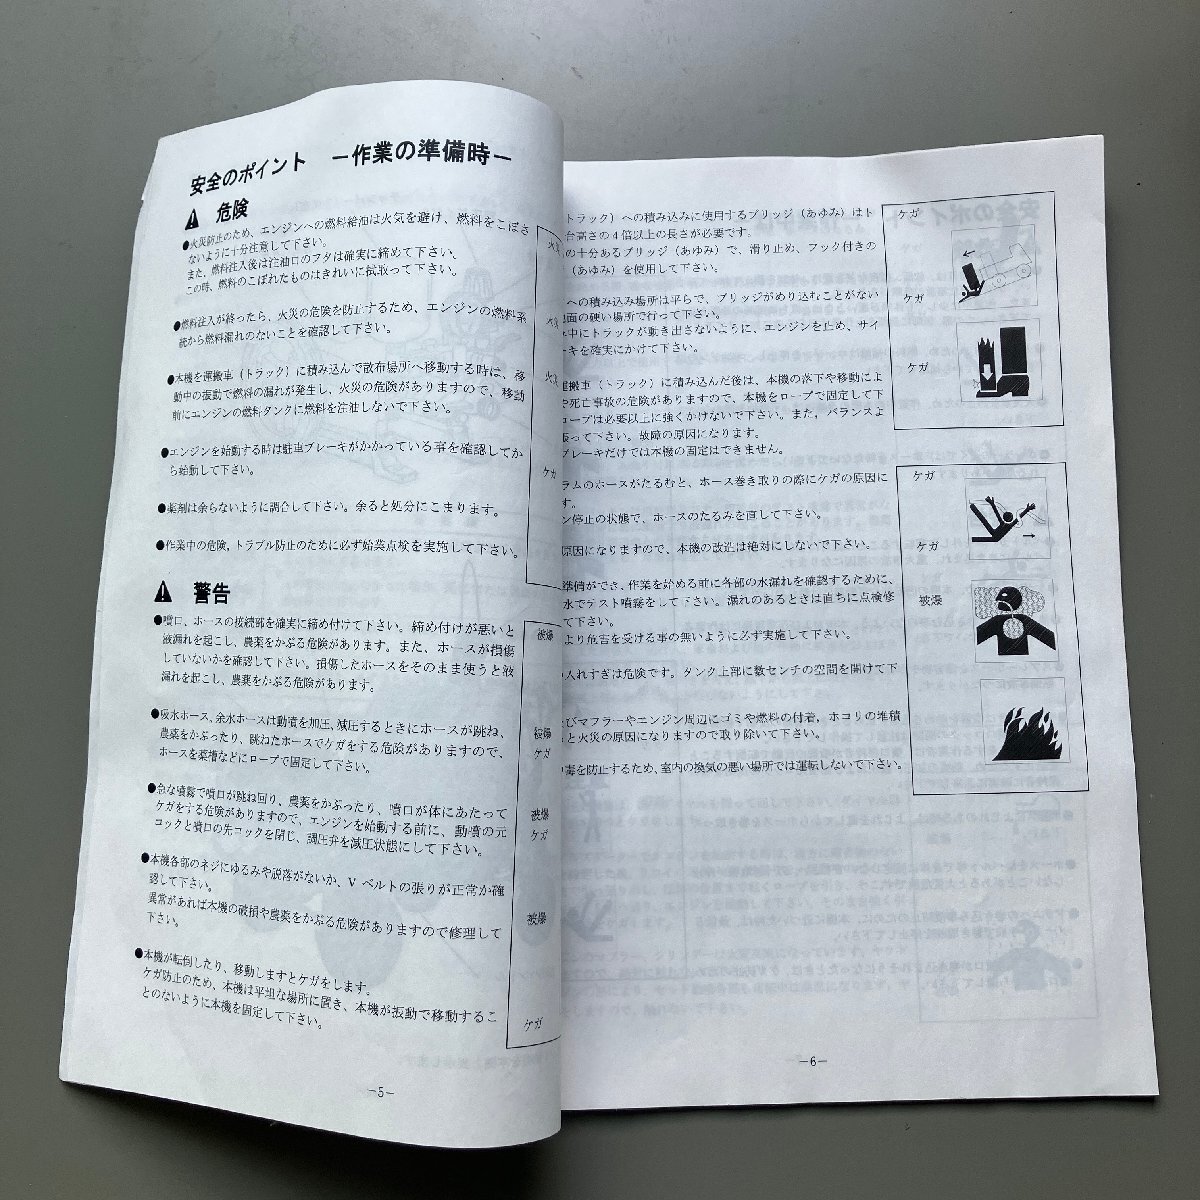 安全のポイント －作業の準備時－
危険
●火災防止のため、エンジンへの燃料給油は火気を避け、燃料をこぼさ
ないように十分注意して下さい。
また、燃料注入後は注油口のフタは確実に締めて下さい。
この時、燃料のこぼれたものはきれいに拭取って下さい。
火災
●燃料注入が終ったら、火災の危険を防止するため、エンジンの燃料系
統から燃料漏れのないことを確認して下さい。
火災
●本機を運搬車（トラック）に積み込んで散布場所へ移動する時は、移
動中の振動で燃料の漏れが発生し、火災の危険がありますので、移動
前にエンジンの燃料タンクに燃料を注油しないで下さい。
火災
●エンジンを始動する時は駐車ブレーキがかかっている事を確認してか
ら始動して下さい。
ケガ
●薬剤は余らないように調合して下さい。余ると処分にこまります。
●作業中の危険，トラブル防止のために必ず始業点検を実施して下さい。
警告
●噴口、ホースの接続部を確実に締め付けて下さい。締め付けが悪いと
液漏れを起こし、農薬をかぶる危険があります。また、ホースが損傷
していないかを確認して下さい。損傷したホースをそのまま使うと液
漏れを起こし、農薬をかぶる危険があります。
被爆
●吸水ホース、余水ホースは動噴を加圧、減圧するときにホースが跳ね、
農薬をかぶったり、跳ねたホースでケガをする危険がありますので、
ホースを薬槽などにロープで固定して下さい。
被爆
ケガ
●急な噴霧で噴口が跳ね回り、農薬をかぶったり、噴口が体にあたって
ケガをする危険がありますので、エンジンを始動する前に、動噴の元
コックと噴口の先コックを閉じ、調圧弁を減圧状態にして下さい。
被爆
ケガ
●本機各部のネジにゆるみや脱落がないか、Vベルトの張りが正常か確
認して下さい。
異常があれば本機の破損や農薬をかぶる危険がありますので修理して
下さい。
被爆
●本機が転倒したり、移動しますとケガをします。
ケガ防止のため、本機は平坦な場所に置き、本機が振動で移動するこ
とのないように本機を固定して下さい。
ケガ
－5－
トラック）への積み込みに使用するブリッジ（あゆみ）はト
台高さの4倍以上の長さが必要です。
の十分あるブリッジ（あゆみ）で、滑り止め、フック付きの
（あゆみ）を使用して下さい。
ケガ
への積み込み場所は平らで、ブリッジがめり込むことがない
地面の硬い場所で行って下さい。
み中にトラックが動き出さないように、エンジンを止め、サイ
ーキを確実にかけて下さい。
ケガ
運搬車（トラック）に積み込んだ後は、本機の落下や移動によ
や死亡事故の危険がありますので、本機をロープで固定して下
ロープは必要以上に強くかけないで下さい。また、バランスよ
張って下さい。故障の原因になります。
ブレーキだけでは本機の固定はできません。
ケガ
ラムのホースがたるむと、ホース巻き取りの際にケガの原因に
す。
ン停止の状態で、ホースのたるみを直して下さい。
ケガ
原因になりますので、本機の改造は絶対にしないで下さい。
ケガ
準備ができ、作業を始める前に各部の水漏れを確認するために、
水でテスト噴霧をして下さい。漏れのあるときは直ちに点検修
て下さい。
より危害を受ける事の無いように必ず実施して下さい。
被爆
入れすぎは危険です。タンク上部に数センチの空間を開けて下
びマフラーやエンジン周辺にゴミや燃料の付着，ホコリの堆積
と火災の原因になりますので取り除いて下さい。
毒を防止するため、室内の換気の悪い場所では運転しないで下さい。
－6－